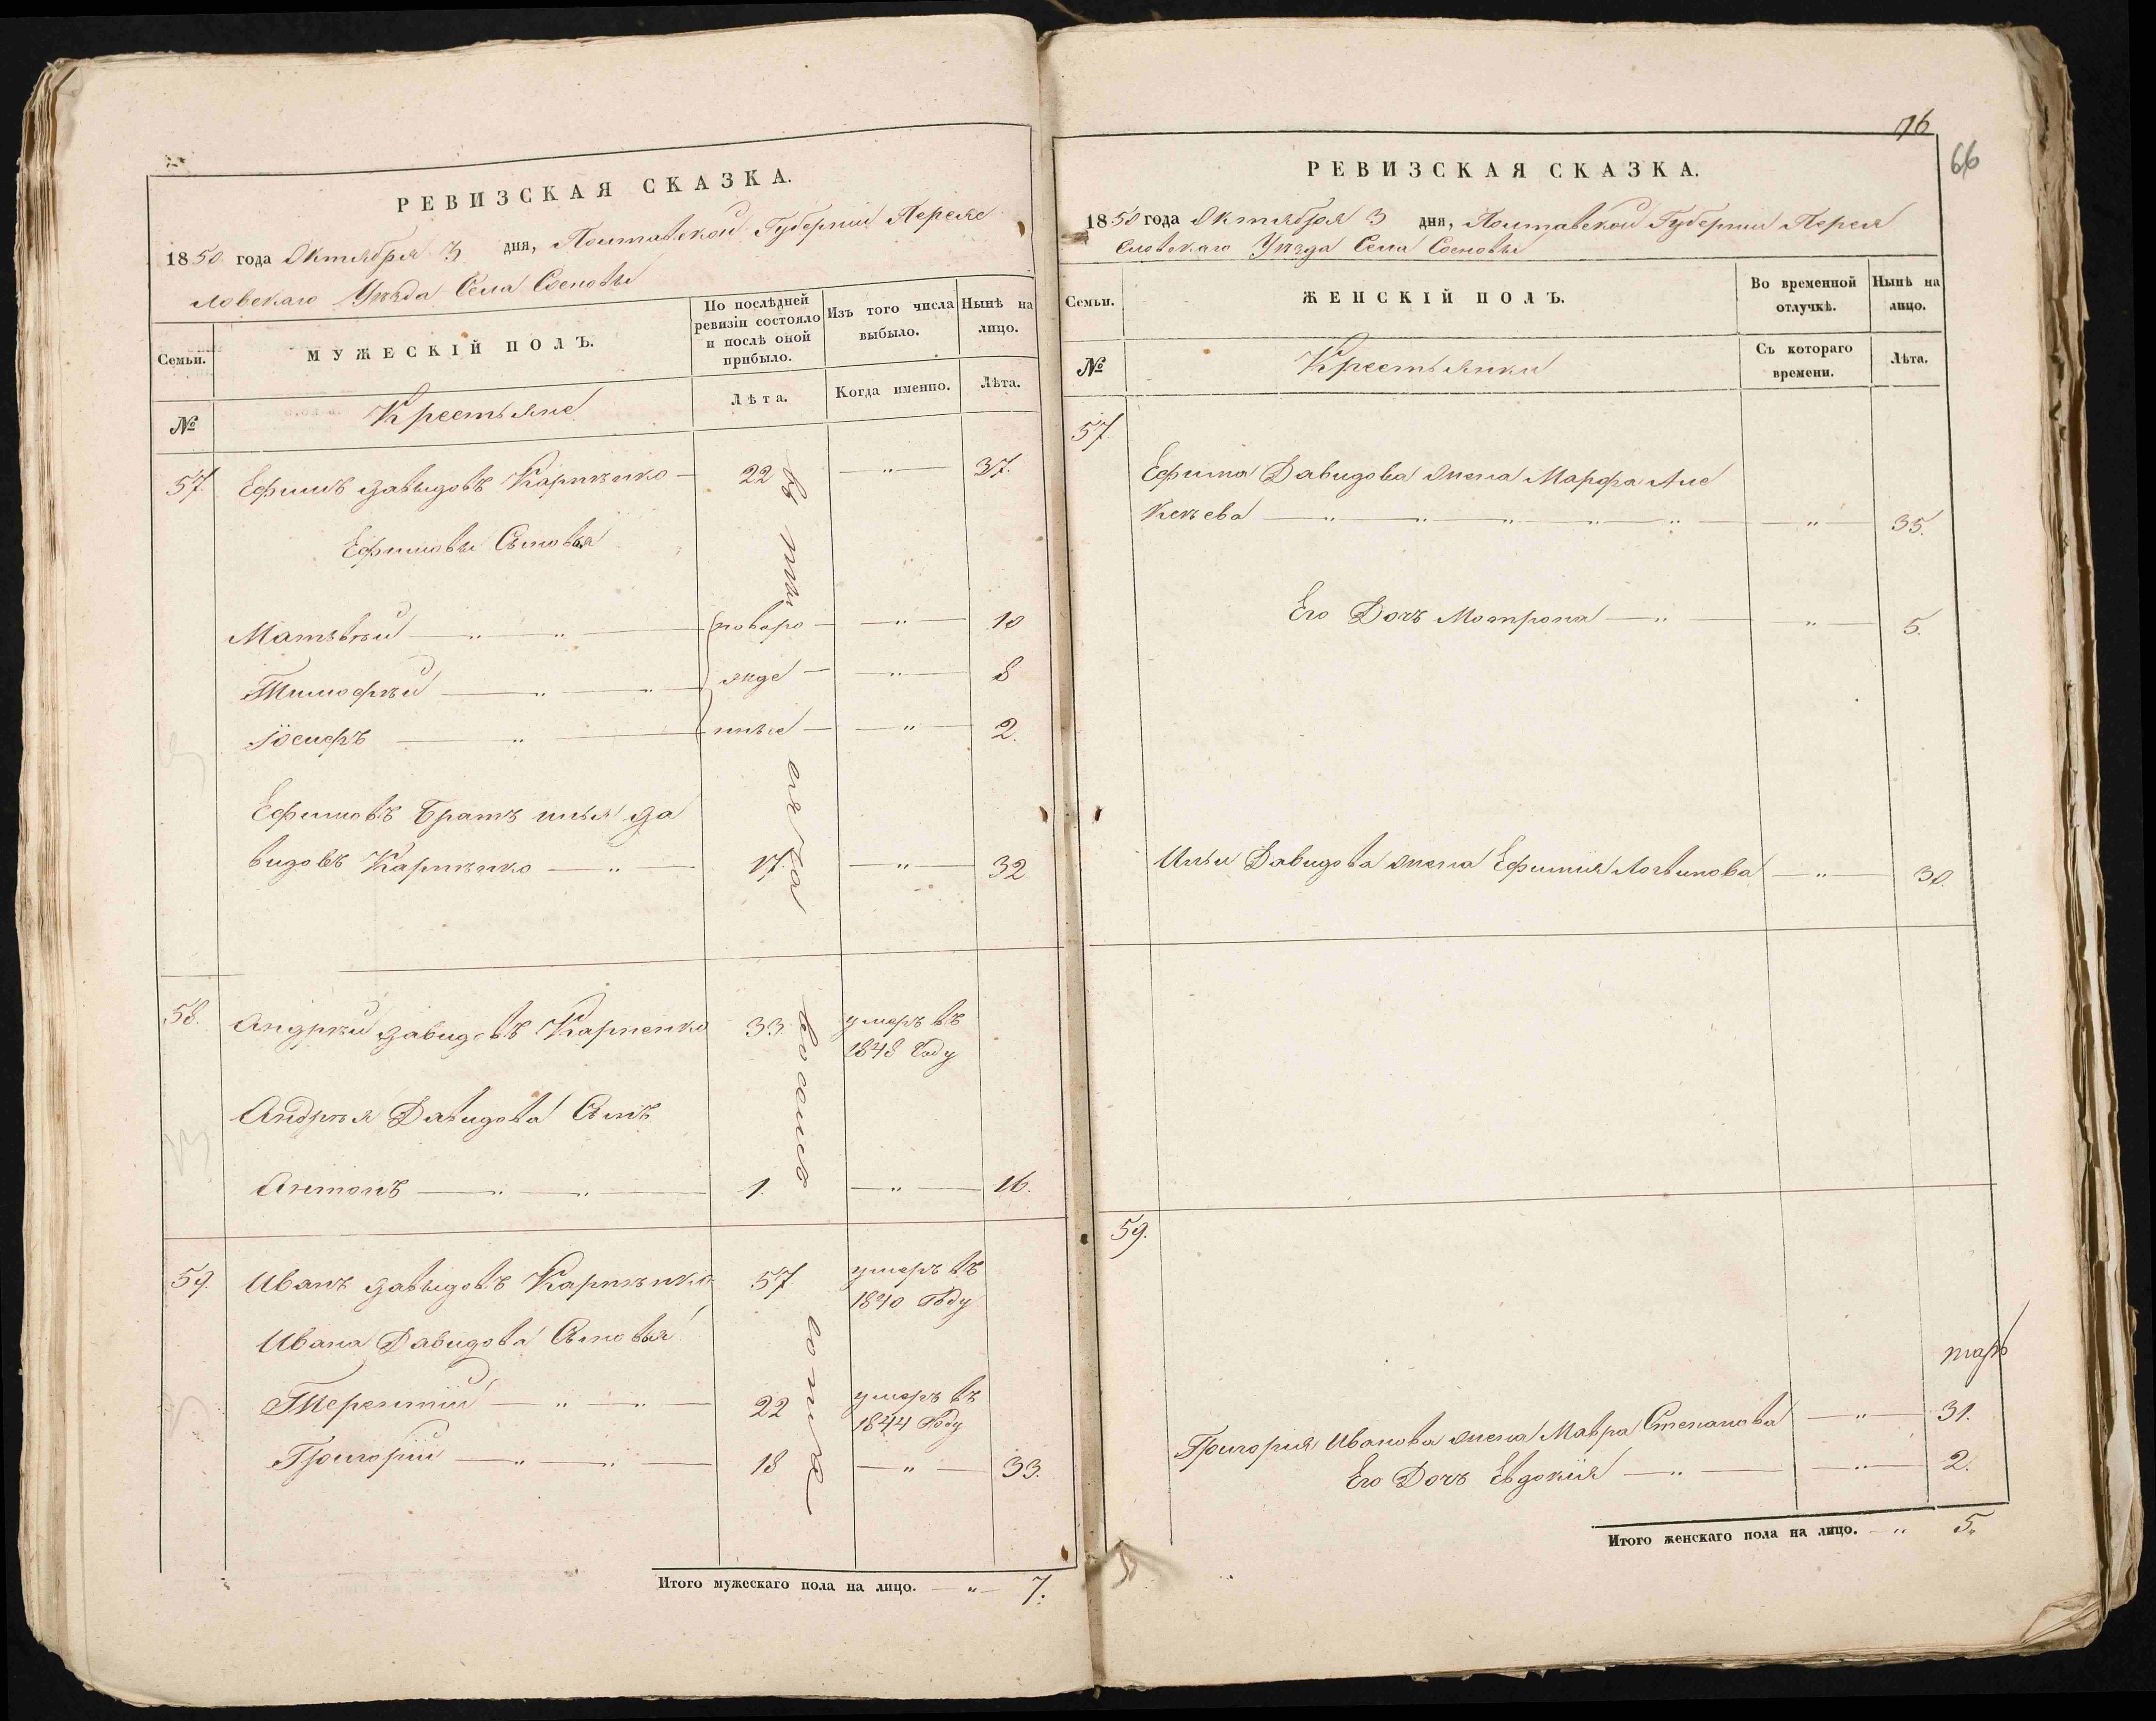 РЕВИЗСКАЯ СКАЗКА.
1850 года Октября 3 дня, Полтавской Губернии Переяс
ловскаго Уезда Села Сосновы
Семьи.
МУЖЕСКІЙ ПОЛЪ.
По послѣдней
ревизіи состояло
и послѣ оной
прибыло.
Изъ того числа
выбыло.
Нынѣ на
лицо.
№
Крестьяне
Лѣта.
Когда именно.
Лѣта.
57. Ефимъ Давыдовъ Карпѣнко 22 — " — 37.
Ефимовы Сыновья
Матвѣй — " — " — новоро — " — 10
Тимофѣй — " — " — жде — " — 8
Іосифъ — " — нные — " — 2.
Ефимовъ Братъ Илья Да
видовъ Карпѣнко — " — 17. — " — 32
58. Андрѣй Давидовъ Карпенко 33. умеръ въ
1848 Году
Андрѣя Давидова Сынъ
Антонъ — " — " — 1. — " — 16.
59. Иванъ Давыдовъ Карпѣнко 57 умеръ въ
1840 Году
Ивана Давидова Сыновья
Терентій — " — " — 22 умеръ въ
1844 Году
Григорій — " — " — 18 — " — 33.
Итого мужескаго пола на лицо. — " — 7.
76
66
РЕВИЗСКАЯ СКАЗКА.
1850 года Октября 3 дня, Полтавской Губернии Перея
словскаго Уезда Села Сосновы
Семьи.
ЖЕНСКІЙ ПОЛЪ.
Во временной
отлучкѣ.
Нынѣ на
лицо.
№
Крестьянки
Съ котораго
времени.
Лѣта.
57.
Ефима Давидова жена Марфа Але
ксѣева — " — " — " — " — " — " — 35.
Его Дочь Мотрона — " — " — 5.
Ильи Давидова жена Ефимія Логвинова — " — 30.
59.
Григорія Иванова жена Мавра Степанова — " — 31.
Его Дочь Евдокія — " — " — 2.
Итого женскаго пола на лицо. — " 5.